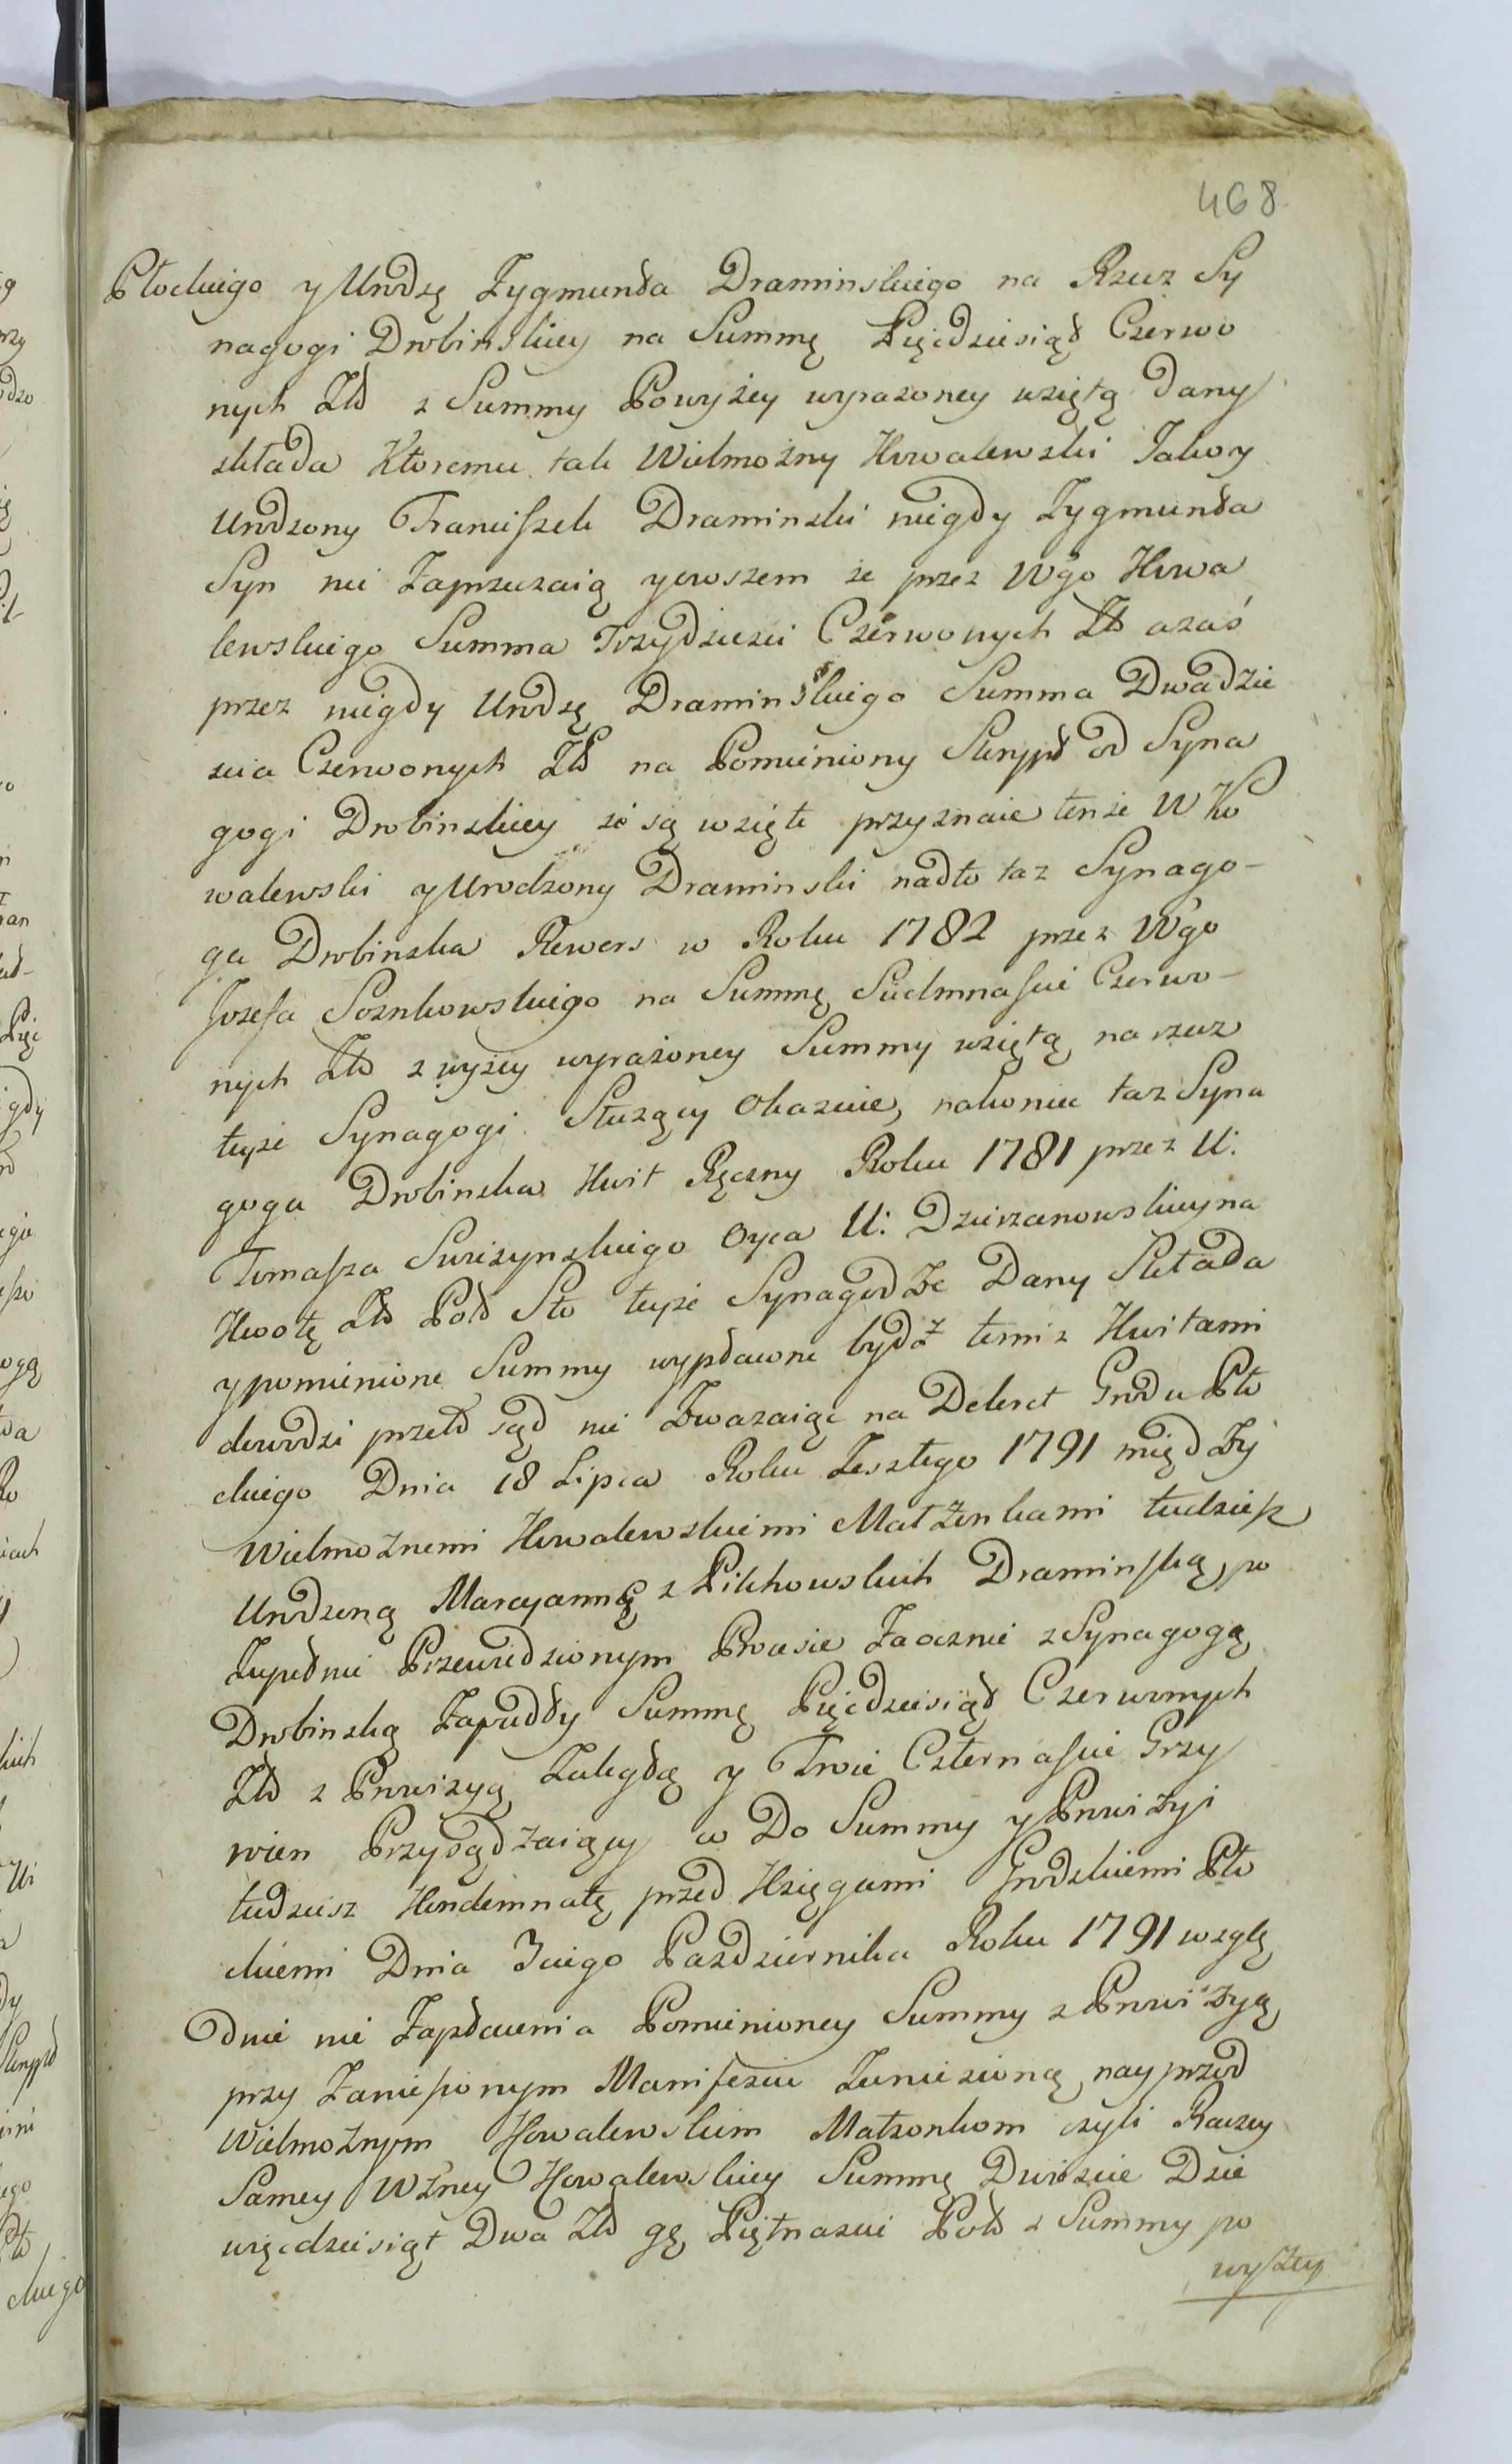 468
Płockiego y Urodzę Zygmunda Draminskiego na Rzecz Sy
nagogi Drobinskiey na Summę Pięcdziesiąd Czerwo
nych Złł z Summy Powyżey wyrazoney wziętą dany
składa Ktoremu tak Wielmożny Kowalewski Jako y
Urodzony Franciszek Draminski niegdy Zygmunda
Syn nie Zaprzeczaią y owszem że przez Wgo Kowa
lewskiego Summa Trzydziesci Czerwonych Złł a zaś
przez niegdy Urodzę Draminskiego Summa Dwadzie
scia Czerwonych Złł na Pomieniony Skrypd od Syna
gogi Drobinskiey że są wzięte przyznaie tenże W Ko
walewski y Urodzony Draminski nadto taz Synago-
ga Drobinska Rewers w Roku 1782 przez Wgo
Jozefa Sosnkowskiego na Summę Siedmnascie Czerwo-
nych Złł z wyżey wyrażoney Summy wziętą na rzecz
teyże Synagogi Służący Okazuie, nakoniec taz Syna
goga Drobinska Kwit Ręczny Roku 1781 przez U:
Tomasza Swiżynskiego Oyca U: Dzierzanowskiey na
Kwotę Złł Pols Sto teyże Synagodze Dany Składa
y pomienione Summy wypłacone bydź temiz Kwitami
dowodzi przeto sąd nie Zwazaiąc na Dekret Grodu Pło
ckiego Dnia 18 Lipca Roku Zeszłego 1791 między
Wielmożnemi Kowalewskiemi Małżonkami tudziesz
Urodzoną Maryannę z Pilchowskich Draminską, po
Zupełnie Przewiedzionym Procesie Zaocznie z Synagogą
Drobinską Zapadły Summę Pięcdziesiąd Czerwonych
Złł z Prowizyą Zaległą y Trwie Czternascie Grzy
wien Przysądzaiący co Do Summy y Prowizyi
tudziesz Kondemnatę przed Księgami Grodzkiemi Pło
ckiemi Dnia 3ciego Pazdziernika Roku 1791 wzglę
dnie nie Zapłacenia Pomienioney Summy z Prowizyą
przy Zaniesionym Manifescie Zaniesioną, nayprzod
Wielmożnym Kowalewskim Małżonkom czyli Raczey
Samey Wżney Kowalewskiey Summę Dwiescie Dzie
więcdziesiąt Dwa Złł gę Piętnascie Pols z Summy po
wyżey